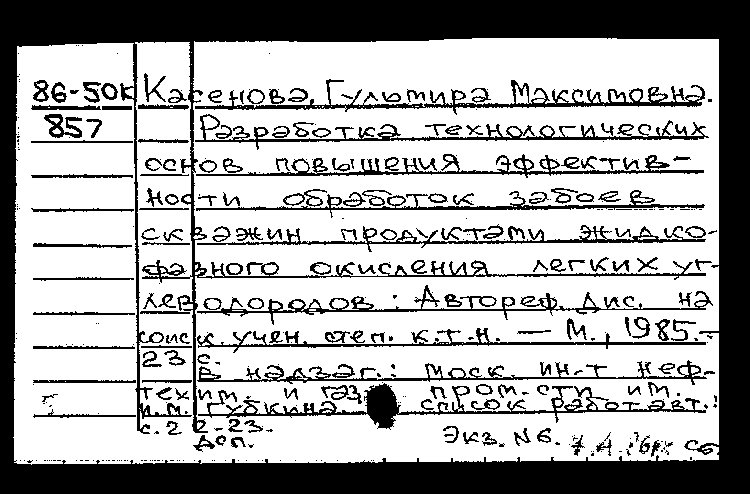 86-50к Касенова, Гультира Максимовна.
857 Разработка технологических
основ повышения эффектив-
ности обработок забоев
скважин продуктами жидко-
фазного окисления легких уг-
леводородов: Автореф. дис. на
соиск. учен. степ. к.т.н. — М., 1985.—
23 с.
В надзаг.: Моск. ин-т неф-
техим. и газ. пром-сти им.
И.М. Губкина. Список работ авт.:
с. 22-23.
Дсп.
Экз. N6.